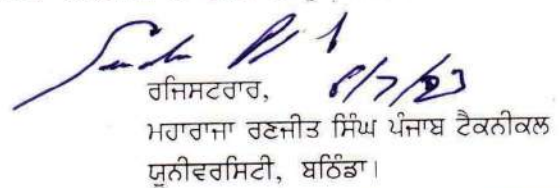 8/7/23
ਰਜਿਸਟਰਾਰ,
ਮਹਾਰਾਜਾ ਰਣਜੀਤ ਸਿੰਘ ਪੰਜਾਬ ਟੈਕਨੀਕਲ
ਯੂਨੀਵਰਸਿਟੀ, ਬਠਿੰਡਾ।